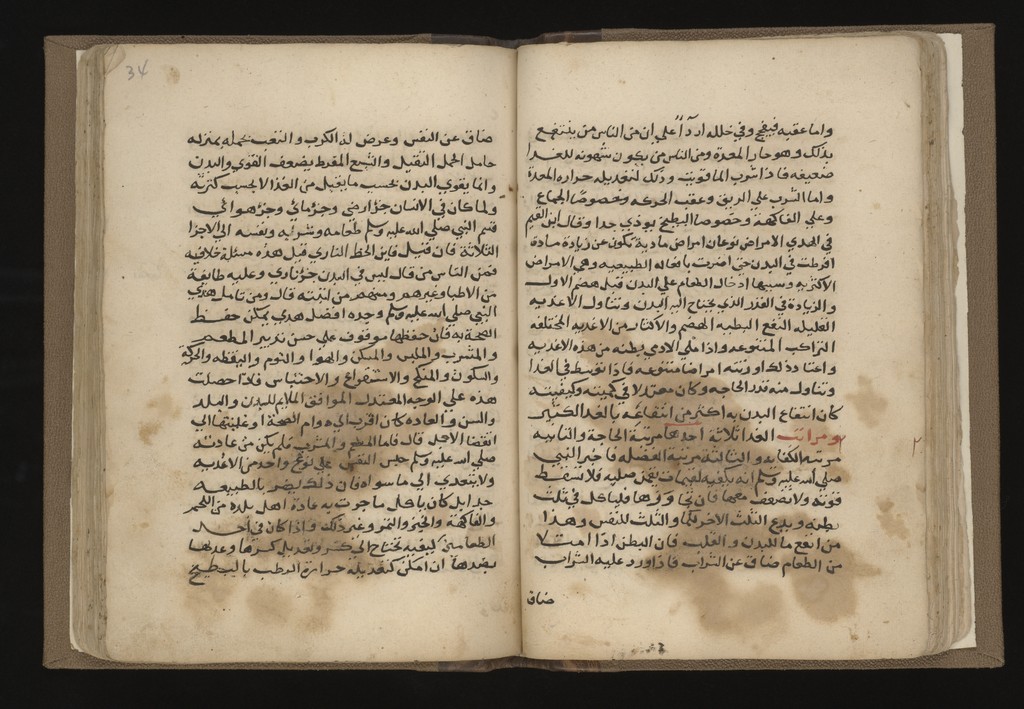 واما عقبه فيفجج وفي خلله اردأ علي ان من الناس من ينتفع
بذلك وهو حار المعدة ومن الناس من يكون شهوته للغدا
ضعيفه فاذا شرب الما قويت وذلك لتعديله حرارة المعدة
واما الشرب علي الريق وعقب الحركه وخصوصا الجماع
وعلي الفاكهة وخصوصا البطيخ يوذي جدا وقال ابن القيم
في الهدي الامراض نوعان امراض مادية تكون عن زيادة مادة
افرطت في البدن حتي اضرت بافعاله الطبيعيه وهي الامراض
الاكثريه وسببها ادخال الطعام علي البدن قبل هضم الاول
والزيادة في القدر الذي يحتاج اليه البدن وتناول الاغديه
القليله النفع البطيه الهضم والاكثار من الاغديه المختلفه
التراكيب المتنوعه واذا ملي الادمي بطنه من هذه الاغديه
واعتاد ذلك اورثته امراضا متنوعه فاذا توسط في الغدا
وتناول منه قدر الحاجه وكان معتدلا في كميته وكيفيته
كان انتفاع البدن به اكثر من انتفاعه بالغدا الكثير
ومراتب الغدا ثلاثة احدها مرتبة الحاجة والثانيه
مرتبه الكفايه والثالثه مرتبة الفضله فاخبر النبي
صلي الله عليه وسلم انه يكفيه لقيمات يقمن صلبه فلا تسقط
قوته ولا تضعف معها فان تجاوزها فلياكل في ثلث
بطنه ويدع الثلث الاخر للما والثلث للنفس وهذا
من انفع ما للبدن والقلب فان البطن اذا امتلا
من الطعام ضاق عن الشراب فاذا ورد عليه الشراب
ضاق
34
ضاق عن النفس وعرض له الكرب والتعب بحمله بمنزلة
حامل الحمل الثقيل والشبع المفرط يضعف القوي والبدن
وانما يقوي البدن بحسب ما يقبل من الغذا لا بحسب كثرته
ولما كان في الانسان جزؤ ارضي وجزؤ مائي وجزؤ هوائي
قسم النبي صلي الله عليه وسلم طعامه وشرابه ونفسه الي الاجزا
الثلاثة فان قيل فاين الحظ الناري قيل هذه مسئلة خلافيه
فمن الناس من قال ليس في البدن جزؤ ناري وعليه طائفة
من الاطبا وغيرهم ومنهم من اثبته قال ومن تامل هدي
النبي صلي الله عليه وسلم وجده افضل هدي يمكن حفظ
الصحة به فان حفظها موقوف علي حسن تدبير المطعم
والمشرب والملبس والمسكن والهوا والنوم واليقظه والحركة
والسكون والمنكح والاستفراغ والاحتباس فاذا حصلت
هذه علي الوجه المعتدل الموافق الملايم للبدن والبلد
والسن والعادة كان اقرب الي دوام الصحة او غلبتها الي
انقضا الاجل قال فاما المطعم والمشرب فلم يكن من عادته
صلي الله عليه وسلم حبس النفس علي نوع واحد من الاغديه
ولا يتعدي الي ما سواه فان ذلك يضر بالطبيعه
جدا بل كان ياكل ما جرت به عادة اهل بلده من اللحم
والفاكهة والخبز والتمر وغير ذلك واذا كان في احد
الطعامين كيفيه تحتاج الي كسر وتعديل كسرها وعدلها
بضدها ان امكن كتعديله حرارة الرطب بالبطيخ